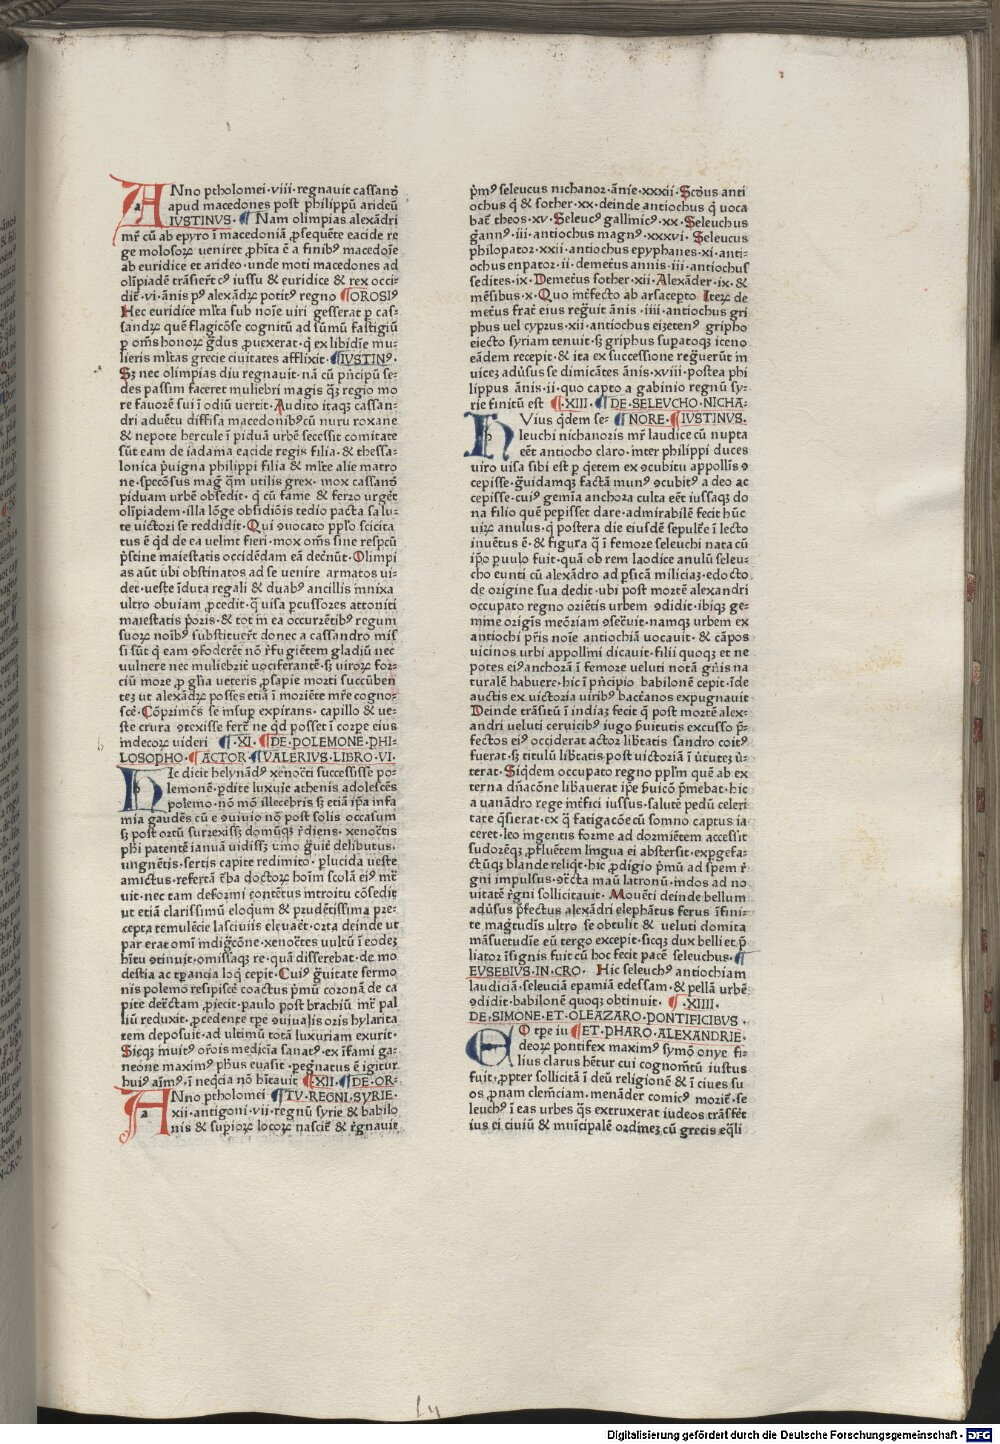 ANno ptholomei·viii·regnauit cassanđ
apud macedones post philippū arideū
IVSTINVS· ¶ Nam olimpias alexādri
mr̄ cū ab epyro ī macedoniā ꝓsequēte eacide re
ge molosoꝝ ueniret ꝓhīta ē a finibꝰ macedoīe
ab euridice et arideo·unde moti macedones ad
olīpiadē trāsier̄t cꝰ iussu & euridice & rex occi-
dit̄·vi·ānis pꝰ alexādꝝ potitꝰ regno ¶OROSIꝰ
Hec euridice mlta sub noīe uiri gesserat p cas-
sandꝝ quē flagicōse cognitū ad sūmū fastigiū
p om̄s honoꝝ gdus ꝓuexerat·q ex libidīe mu-
lieris mltas grecie ciuitates afflixit·¶IVSTINꝰ·
Sꝫ nec olimpias diu regnauit·nā cū pn̄cipū se-
des passim faceret muliebri magis qꝫ regio mo
re fauorē sui ī odiū uertit·Audito itaqꝫ cassan-
dri aduētu diffisa macedonibꝰcū nuru roxane
& nepote hercule ī pīduā urbē secessit comitate
sūt eam de iadama eacide regis filia·& thessa-
lonica pͥuigna philippi filia & mlte alie matro
ne·speccōsus mag qm̄ utilis grex·mox cassanđ
pīduam urbē obsedit·q cū fame & ferro urget̄
olīpiadem·illa lōge obsidiōis tedio pacta salu-
te uictori se reddidit·Qui ꝯuocato ppl̄o scicita
tus ē qd de ea uelint fieri·mox om̄s sine respcū
pͥstine maiestatis occidēdam eā decn̄ūt·Olimpi
as aūt ubi obstinatos ad se uenire armatos ui-
det·ueste īduta regali & duabꝰ ancillis innixa
ultro obuiam ꝓcedit·q̄ uisa pcussores attoniti
maiestatis pͥoris·& tot in ea occurrētibꝰ regum
suoꝝ noībꝰ substituer̄t donec a cassandro mis
si sūt q eam ꝯfoderēt nō rͤfugiētem gladiū nec
uulnere nec muliebrit̄ uociferantē·sꝫ uiroꝝ for-
ciū more ꝓ gl̄ia ueteris ꝓsapie morti succūben
teꝫ ut alexādꝝ posses etiā ī moriēte mr̄e cogno-
scē·Cōprimēs se insuꝑ expirans·capillo & ue-
ste crura ꝯtexisse fert̄ ne qd posset ī corpe eius
indecoꝝ uideri ¶·XI·¶DE·POLEMONE·PHI-
LOSOPHO·¶ACTOR·¶VALERIVS·LIBRO·VI·
HIc dicit helynādꝰ xenocti successisse po-
lemonē·pdite luxuie athenis adolescēs
polemo·nō mō illecebris sꝫ etiā ip̄a infa
mia gaudēs cū e ꝯuiuio nō post solis occasum
sꝫ post ortū surrexissꝫ domūqꝫ rͤdiens·xenocͬtis
phi patentē ianuā uidissꝫ uino guit̄ delibutus·
ungnētis·sertis capite redimito·plucida ueste
amictus·refertā tͬba doctoꝝ hoīm scolā eiꝰ int̄
uit·nec tam deformi contētus introitu cōsedit
ut etiā clarissimū eloqum & prudētissima pre-
cepta temulēcie lasciuiis eleuaēt·orta deinde ut
par erat omī indigͣcōne·xenocͬtes uultū ī eodeꝫ
hītu ꝯtinuit·omissaqꝫ re·quā disserebat·de mo
destia ac tpancia loq cepit·Cuiꝰ guitate sermo
nis polemo resipiscē coactus pͥmū coronā de ca
pite detͣctam ꝓiecit·paulo post brachiū int̄ pal
liū reduxit·ꝓcedente tpe ꝯuiualis oris hylarita
tem deposuit·ad ultimū totā luxuriam exurit·
Sicqꝫ muitꝰ orōis medicīa sanatꝰ·ex īfami ga-
neone maximꝰ phus euasit·pegͬnatus ē igitur
huiꝰ aīmꝰ·ī neqͥcia nō hītauit ¶·XII·¶DE·OR-
ANno ptholomei ¶TV·REGNI·SYRIE·
xii·antigoni·vii·regnū syrie & babilo
nis & supioꝝ locoꝝ nascit̄ & rͤgnauit
pͥmꝰ seleucus nichanor·ānīe·xxxii·Scđus anti
ochus q & sother·xx·deinde antiochus q uoca
bat̄ theos·xv·Seleucꝰ gallinicꝰ·xx·Seleuchus
gannꝰ·iii·antiochus magnꝰ·xxxvi·Seleucus
philopator·xxii·antiochus epyphanes·xi·anti-
ochus enpator·ii·demetius annis·iii·antiochus
sedites·ix·Demetius sother·xii·Alexāder·ix·&
mēsibus·x·Quo int̄fecto ab arsacepto Iteꝝ de
metius frat̄ eius regͣuit ānis·iiii·antiochus gri
phus uel cyprus·xii·antiochus eizetenꝰ gripho
eiecto syriam tenuit·sꝫ griphus supatoqꝫ iceno
eādem recepit·& ita ex successione regͣuerūt in
uiceꝫ adūsus se dimicātes ānis·xviii·postea phi
lippus ānis·ii·quo capto a gabinio regnū sy-
rie finitū est ¶·XIII·¶DE·SELEVCHO·NICHA-
HVius qdem se- ¶NORE·¶IVSTINVS·
leuchi nichanoris mr̄ laudice cū nupta
eēt antiocho claro·inter philippi duces
uiro uisa sibi est p qͥetem ex ꝯcubitu appollīs ꝯ
cepisse·guidamqꝫ factā munꝰ ꝯcubitꝰ a deo ac
cepisse·cuiꝰ gemīa anchora culta eēt iussaqꝫ do
na filio quē pepisset dare·admirabilē fecit hūc
uiꝝ anulus·q postera die eiusdē sepulcͬe ī lecto
inuētus ē·& figura q̄ ī femore seleuchi nata cū
ip̄o puulo fuit·quā ob rem laodice anulū seleu-
cho eunti cū alexādro ad psicā miliciaꝫ·edocto
de origine sua dedit·ubi post mortē alexandri
occupato regno oriētis urbem ꝯdidit·ibiqꝫ ge-
mine origīs meōriam ꝯsecͣuit·namqꝫ urbem ex
antiochi pͬis noīe antiochiā uocauit·& cāpos
uicinos urbi appollīni dicauit·filii quoqꝫ et ne
potes eiꝰanchorā ī femore ueluti notā gn̄is na
turalē habuere·hic ī pn̄cipio babilonē cepit·īde
auctis ex uictoria uiribꝰ bactianos expugnauit
Deinde trāsitū ī indiaꝫ fecit q post mortē alex-
andri ueluti ceruicibꝰ iugo suitutis excusso p̄-
fectos eiꝰ occiderat actor libtatis sandro coitꝰ
fuerat·sꝫ titulū libtatis post uictoriā ī ūtuteꝫ ū-
terat·Siqͥdem occupato regno pplm quē ab ex
terna dn̄acōne libauerat ip̄e suicō pͤmebat·hic
a uanādro rege int̄fici iussus·salutē pedū celeri
tate qͥsierat·ex q̄ fatigacōecū somno captus ia
ceret·leo ingentis forme ad dormiētem accessit
sudorēqꝫ ꝓfluētem lingua ei abstersit·expgefa-
ctūqꝫ blande reliqͥt·hic ꝓdigio pͥmū ad spem rͤ
gni impulsus·ꝯtͬcta manū latronū·indos ad no
uitatē rͤgni sollicitauit· Mouēti deinde bellum
adūsus p̄fectus alexādri elephātus ferus īfini-
te magͬtudīs ultro se obtulit & ueluti domita
māsuetudīe eū tergo excepit·sicqꝫ dux belli et p̄
liator īsignis fuit cū hoc fecit pacē seleuchus·¶
EVSEBIVS·IN·CRO· Hic seleuchꝰ antiochiam
laudiciā·seleuciā epamiā edessam·& pellā urbē
ꝯdidit·babilonē quoqꝫ obtinuit· ¶·XIIII·
DE·SIMONE·ET·OLEAZARO·PONTIFICIBVS·
EO tpe iu ¶ET·PHARO·ALEXANDRIE·
deoꝝ pontifex maximꝰ symō onye fi-
lius clarus hētur cui cognomtū iustus
fuit·ꝓpter sollicitā ī deū religionē & ī ciues su
os ꝓnam clemciam·menāder comicꝰ morit̄·se
leuchꝰ ī eas urbes q̄s extruxerat iudeos trāsfēt
ius ei ciuiū & muīcipalē ordineꝫ cū grecis eqͣli